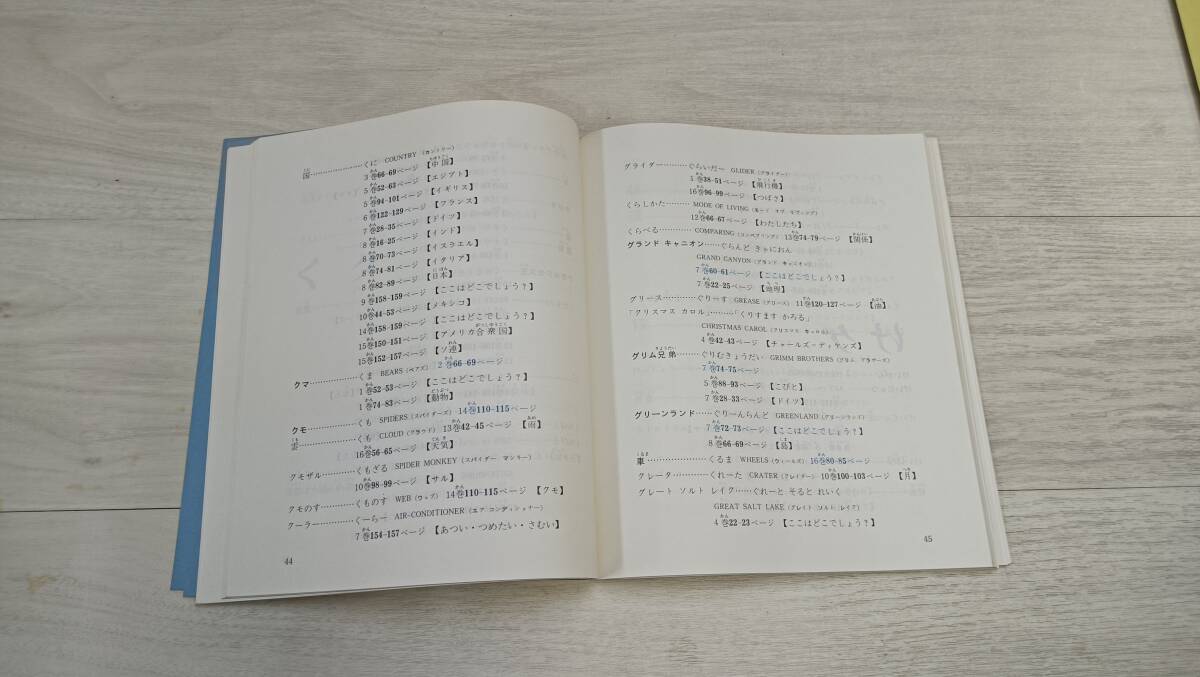 国…………くに COUNTRY (カントリー)
3巻66-69ページ【中国】
5巻52-63ページ【エジプト】
5巻94-101ページ【イギリス】
6巻122-129ページ【フランス】
7巻28-35ページ【ドイツ】
8巻16-25ページ【インド】
8巻70-73ページ【イスラエル】
8巻74-81ページ【イタリア】
8巻82-89ページ【日本】
9巻158-159ページ【ここはどこでしょう?】
10巻44-53ページ【メキシコ】
14巻158-159ページ【ここはどこでしょう?】
15巻150-151ページ【アメリカ合衆国】
15巻152-157ページ【ソ連】
クマ…………くま BEARS (ベアズ) 2巻66-69ページ
1巻52-53ページ【ここはどこでしょう?】
1巻74-83ページ【動物】
クモ…………くも SPIDERS (スパイダーズ) 14巻110-115ページ
雲…………くも CLOUD (クラウド) 13巻42-45ページ【雨】
16巻56-65ページ【天気】
クモザル…………くもざる SPIDER MONKEY (スパイダー マンキー)
10巻98-99ページ【サル】
クモのす…………くものす WEB (ウェブ) 14巻110-115ページ【クモ】
クーラー…………くーらー AIR-CONDITIONER (エア コンディショナー)
7巻154-157ページ【あつい・つめたい・さむい】
44
グライダー…………ぐらいだー GLIDER (グライダー)
1巻38-51ページ【飛行機】
16巻96-99ページ【つばさ】
くらしかた………MODE OF LIVING (モード オブ リヴィング)
12巻66-67ページ【わたしたち】
くらべる………COMPARING (コンペアリング) 13巻74-79ページ【関係】
グランド キャニオン……ぐらんど きゃにおん
GRAND CANYON (グランド キャニオン)
7巻60-61ページ【ここはどこでしょう?】
7巻22-25ページ【地理】
グリース…………ぐりーす GREASE (グリース) 11巻120-127ページ【油】
「クリスマス カロル」………「くりすます かろる」
CHRISTMAS CAROL (クリスマス キャロル)
4巻42-43ページ【チャールズ=ディケンズ】
グリム兄弟………ぐりむきょうだい GRIMM BROTHERS (グリム ブラザーズ)
7巻74-75ページ
5巻88-93ページ【こびと】
7巻28-33ページ【ドイツ】
グリーンランド……ぐりーんらんど GREENLAND (グリーンランド)
7巻72-73ページ【ここはどこでしょう?】
8巻66-69ページ【島】
車…………くるま WHEELS (ウィールズ) 16巻80-85ページ
クレータ…………くれーた CRATER (クレイター) 10巻100-103ページ【月】
グレート ソルト レイク……ぐれーと そると れいく
GREAT SALT LAKE (グレイト ソルト レイク)
4巻22-23ページ【ここはどこでしょう?】
45